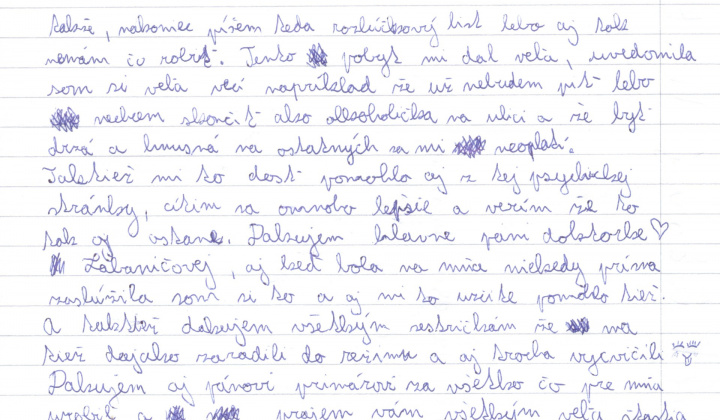 takže, nakoniec píšem teda rozlúčkový list lebo aj tak
nemám čo robiť. Tento pobyt mi dal veľa, uvedomila
som si veľa vecí napríklad že už nebudem piť lebo
nechcem skončiť ako alkoholička na ulici a že byť
drzá a hnusná na ostatných sa mi neoplatí.
Taktiež mi to dosť pomohlo aj z tej psychickej
stránky, cítim sa omnoho lepšie a verím že to
tak aj ostane. Ďakujem hlavne pani doktorke ♡
Zábaničovej, aj keď bola na mňa niekedy prísna
zaslúžila som si to a aj mi to určite pomohlo tiež.
A taktiež ďakujem všetkým sestričkám že ma
tiež dajako zaradili do režimu a aj trocha vycvičili
Ďakujem aj pánovi primárovi za všetko čo pre mňa
urobil a prajem vám všetkým veľa